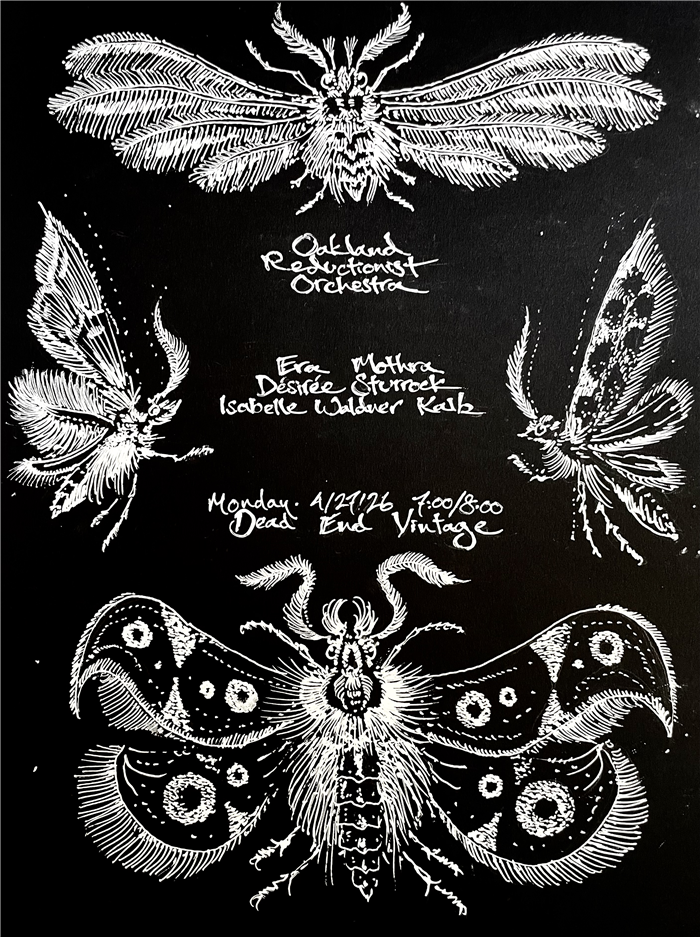 Oakland
Reductionist
Orchestra
Era Mothra
Désirée Sturrock
Isabelle Waldner Kalb
Monday. 4/27/26 7:00/8:00
Dead End Vintage